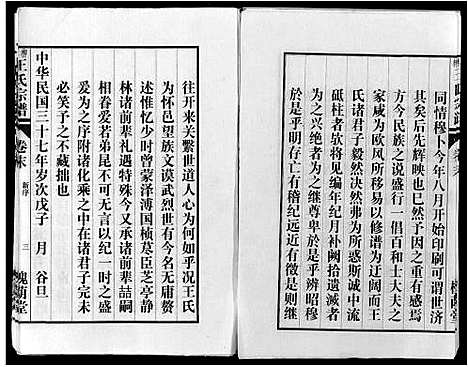 同情穆卜今年八月开始印刷可谓世济
其美后先辉映也已然予因之重有感于
方今民族之说盛行一倡百和士大夫之
家咸为欧风所移异以修谱为迂阔而王
氏诸君子独毅然为所不为所惑斯诚中流
砥柱者欤将见编年纪月补阙拾遗前人
为之兴绝者为之继尊卑於是乎辨昭穆
於是乎明存亡有稽纪远近有徵是则继
往开来关系世道人心为何如乎况王氏
为怀邑望族文谟武烈世有令名无庸赘
述予少时曾蒙泽溥国桢莫臣芝亭静
林诸前辈礼遇特殊今又承诸前辈喆嗣
相眷爱若弟昆不可无言以纪一时之盛
爰为之序附诸化乘之中在诸君子完未
必笑予之不藏拙也
中华民国三十七年岁次戊子 月 谷旦
王氏宗谱
卷末
新序
三
槐荫堂